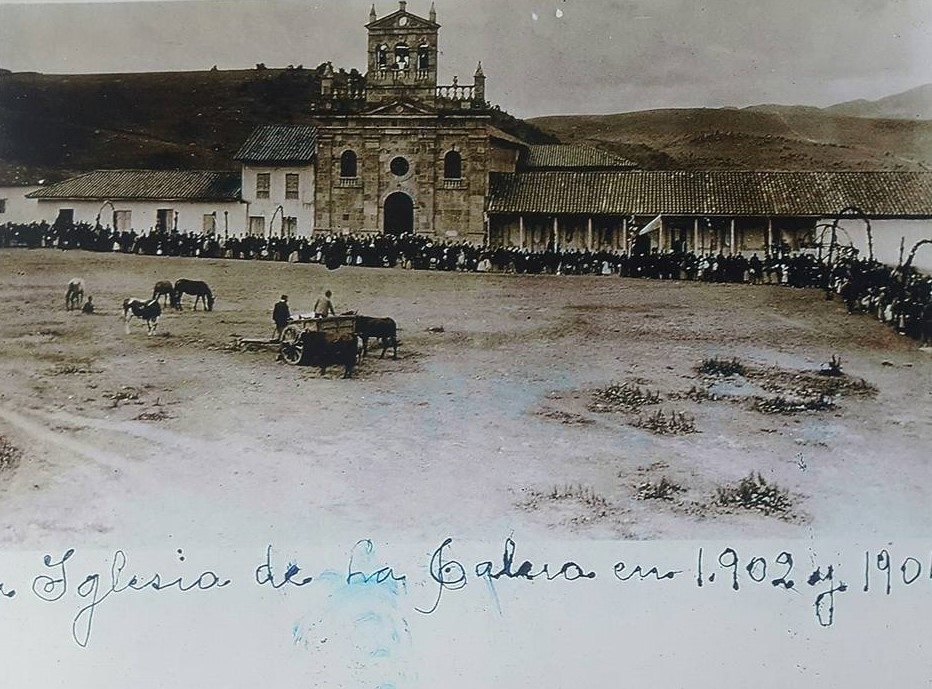 Iglesia de La Calera en 1.902 y 190